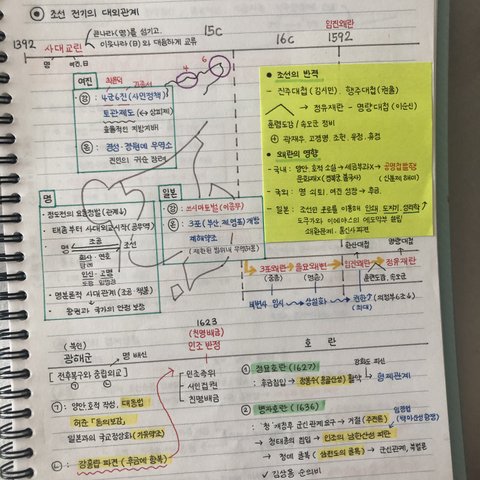 조선 전기의 대외관계
1392 사대교린
큰나라(명)를 섬기고
이웃나라(日)와 대등하게 교류
15c
16c
임진왜란
1592
명 여진, 日
여진
최윤덕 김종서
4 6
강: 4군6진 (사민정책)
토관제도 (↔상피제)
효율적인 지방지배
온: 경성·경원에 무역소
명
정도전의 요동정벌 (관계↓)
태종부터 사대외교시작 (공무역)
명 조공 조선
회사·연호
인신·고명
명분론적 사대관계 (조공·책봉)
왕권과 국가의 안정 보장
일본
강: 쓰시마토벌 (이종무)
온: 3포 (부산, 제, 염포) 개방
계해약조
(제한된 범위내 무역허용)
조선의 반격
- 진주대첩 (김시민) · 행주대첩 (권율)
→ 정유재란 - 명량대첩 (이순신)
훈련도감 / 속오군 정비
+ 곽재우, 고경명, 조헌, 유정, 휴정
왜란의 영향
- 국내: 양안, 호적 소실 → 세금부과X → 공명첩발행
문화재X (경복궁, 불국사) (신분제 해이)
- 국외: 명 쇠퇴, 여진 성장 → 후금
- 일본: 조선인 포로를 이용해 인쇄, 도자기, 성리학↑
도쿠가와 이에야스의 에도막부 정립
왜관문제: 통신사 파견
한산대첩 명량대첩
3포왜란 → 을묘왜변 → 임진왜란 → 정유재란
(중종) (명종)
훈련도감, 속오군
비변사: 임시 → 상설화 → 권한↑ (의정부6조↓)
(최대)
1623
(친명배금)
인조 반정
(북인)
광해군 명 배신
[전후복구와 중립외교]
㉠: 양안, 호적 작성, 대동법
허준 「동의보감」
일본과의 국교정상화 (기유약조)
㉡: 강홍립 파견 (후금에 항복)
민조종위
서인집권
친명배금
호란
① 정묘호란 (1627)
강화도 피신
: 후금침입 → 정봉수 (용골산성) 활약 → 형제관계
② 병자호란 (1636)
임경업
(백마산성 항쟁)
: 청 재침후 군신관계 요구 → 거절 (주전론)
→ 청태종의 침입 → 인조의 남한산성 피난
→ 청에 굴복 (삼전도의 굴욕) → 군신관계, 북벌론
✓ 김상용 순의비